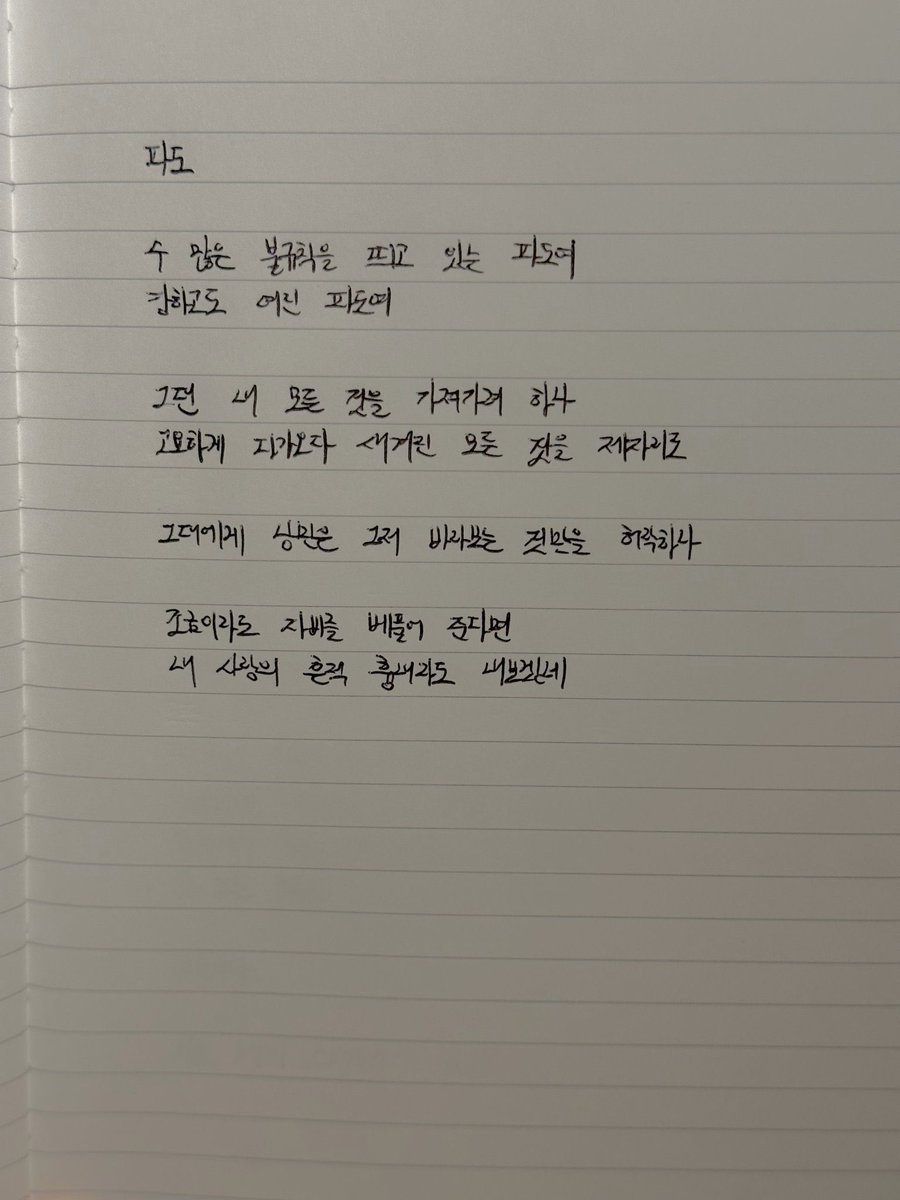 파도
수 많은 불규칙을 띄고 있는 파도여
강하고도 여린 파도여
그댄 내 모든 것을 가져가려 하나
고요하게 다가오다 새겨진 모든 것을 제자리로
그대에게 낭만은 그저 바라보는 것만을 허락하나
조금이라도 자비를 베풀어 준다면
내 사랑의 흔적 흉내라도 내보겠네